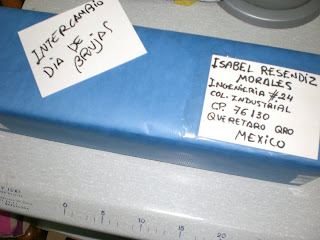 INTERCAMBIO
DIA DE
BRUJAS
ISABEL RESENDIZ
MORALES
INGENIERIA #24
COL. INDUSTRIAL
CP. 76130
QUERETARO QRO
MEXICO
0 5 10 15 20